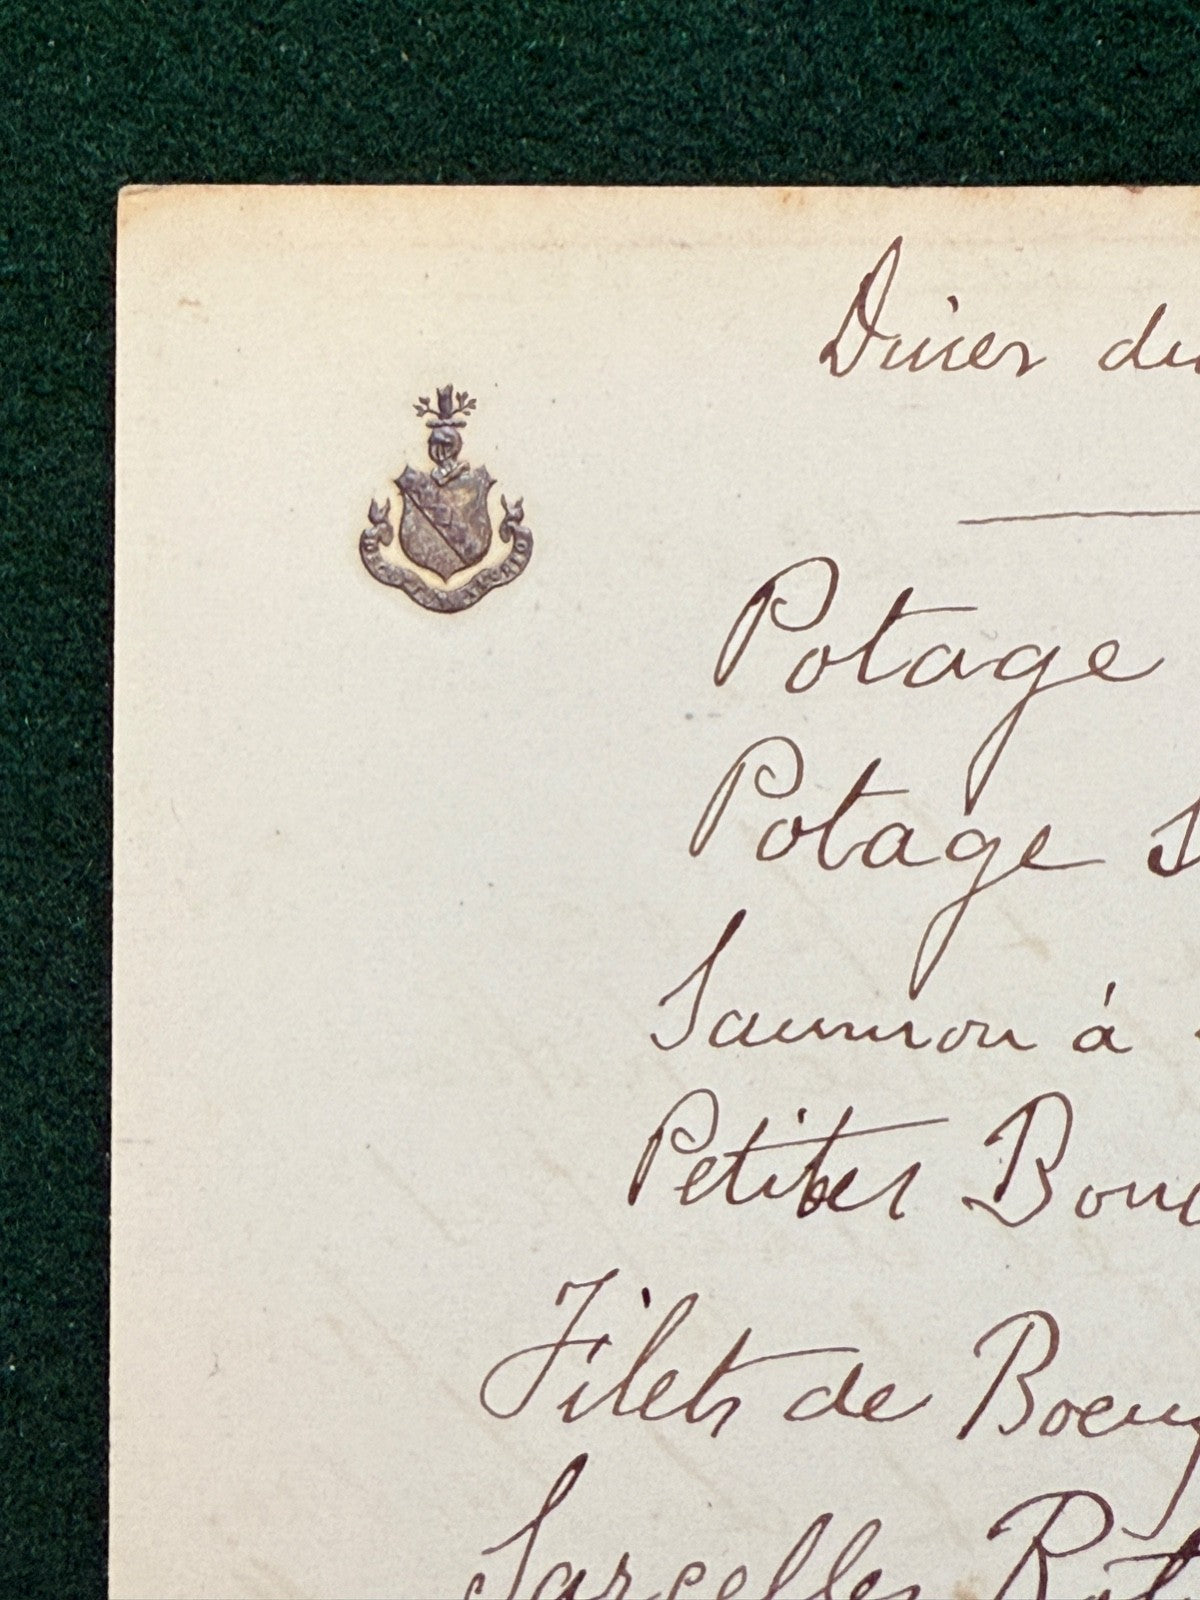 Diner du
Potage
Potage
Saumon à
Petites
Filets de Boeuf
Sarcelles